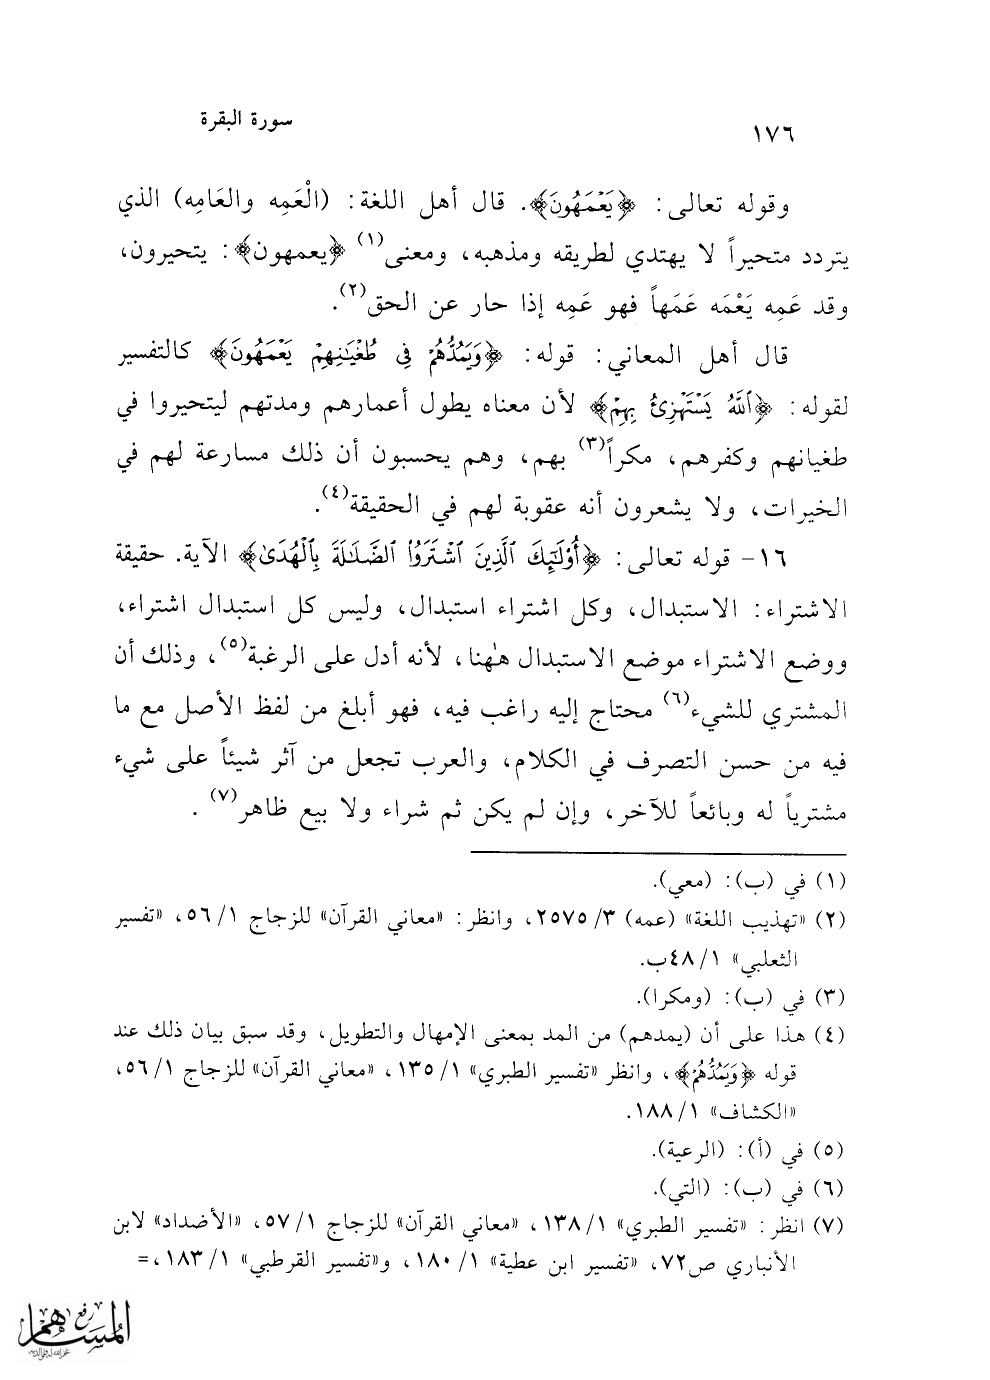 ١٧٦ سورة البقرة
وقوله تعالى: ﴿يَعْمَهُونَ﴾. قال أهل اللغة: (الْعَمِه والعَامِه) الذي
يتردد متحيراً لا يهتدي لطريقه ومذهبه، ومعنى(١) ﴿يعمهون﴾: يتحيرون،
وقد عَمِه يَعْمَه عَمَهاً فهو عَمِه إذا حار عن الحق(٢).
قال أهل المعاني: قوله: ﴿وَيَمُدُّهُمْ فِي طُغْيَٰنِهِمْ يَعْمَهُونَ﴾ كالتفسير
لقوله: ﴿ٱللَّهُ يَسْتَهْزِئُ بِهِمْ﴾ لأن معناه يطول أعمارهم ومدتهم ليتحيروا في
طغيانهم وكفرهم، مكراً(٣) بهم، وهم يحسبون أن ذلك مسارعة لهم في
الخيرات، ولا يشعرون أنه عقوبة لهم في الحقيقة(٤).
١٦- قوله تعالى: ﴿أُوْلَٰٓئِكَ ٱلَّذِينَ ٱشْتَرَوُاْ ٱلضَّلَٰلَةَ بِٱلْهُدَىٰ﴾ الآية. حقيقة
الاشتراء: الاستبدال، وكل اشتراء استبدال، وليس كل استبدال اشتراء،
ووضع الاشتراء موضع الاستبدال هٰهنا، لأنه أدل على الرغبة(٥)، وذلك أن
المشتري للشيء(٦) محتاج إليه راغب فيه، فهو أبلغ من لفظ الأصل مع ما
فيه من حسن التصرف في الكلام، والعرب تجعل من آثر شيئاً على شيء
مشترياً له وبائعاً للآخر، وإن لم يكن ثم شراء ولا بيع ظاهر(٧).
(١) في (ب): (معي).
(٢) «تهذيب اللغة» (عمه) ٣/ ٢٥٧٥، وانظر: «معاني القرآن» للزجاج ١/ ٥٦، «تفسير
الثعلبي» ١/ ٤٨ب.
(٣) في (ب): (ومكرا).
(٤) هذا على أن (يمدهم) من المد بمعنى الإمهال والتطويل، وقد سبق بيان ذلك عند
قوله ﴿وَيَمُدُّهُمْ﴾، وانظر «تفسير الطبري» ١/ ١٣٥، «معاني القرآن» للزجاج ١/ ٥٦،
«الكشاف» ١/ ١٨٨.
(٥) في (أ): (الرعية).
(٦) في (ب): (التي).
(٧) انظر: «تفسير الطبري» ١/ ١٣٨، «معاني القرآن» للزجاج ١/ ٥٧، «الأضداد» لابن
الأنباري ص٧٢، «تفسير ابن عطية» ١/ ١٨٠، و«تفسير القرطبي» ١/ ١٨٣،=
رفع
المساهم